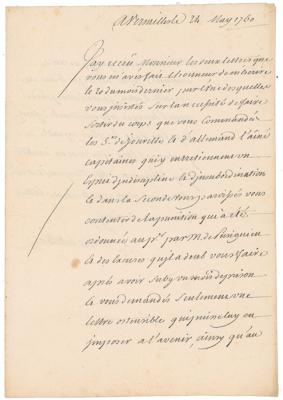 A Versailles le 24 May 1760
J'ay receu Monsieur les deux lettres que
vous m'avés fait l'honneur de m'ecrire
le 20 du mois dernier par l'une desquelles
vous insistés sur la necessité de faire
sortir du corps que vous commandés
les Srs de Jouville et d'allemand l'ainé
capitaines qui y entretiennent un
esprit d'indiscipline et d'insubordination
et dans la seconde vous paroissés vous
contenter de la punition qui a été
ordonnée au par M. de
et des excuses qu'il a deut vous faire
après avoir suby un mois de prison
et vous demandés seulement une
lettre ostensible qui puisse luy en
imposer a l'avenir, ainsy qu'au